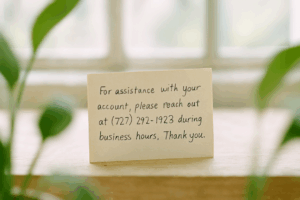 For assistance with your
account, please reach out
at (727) 292-1923 during
business hours. Thank you.